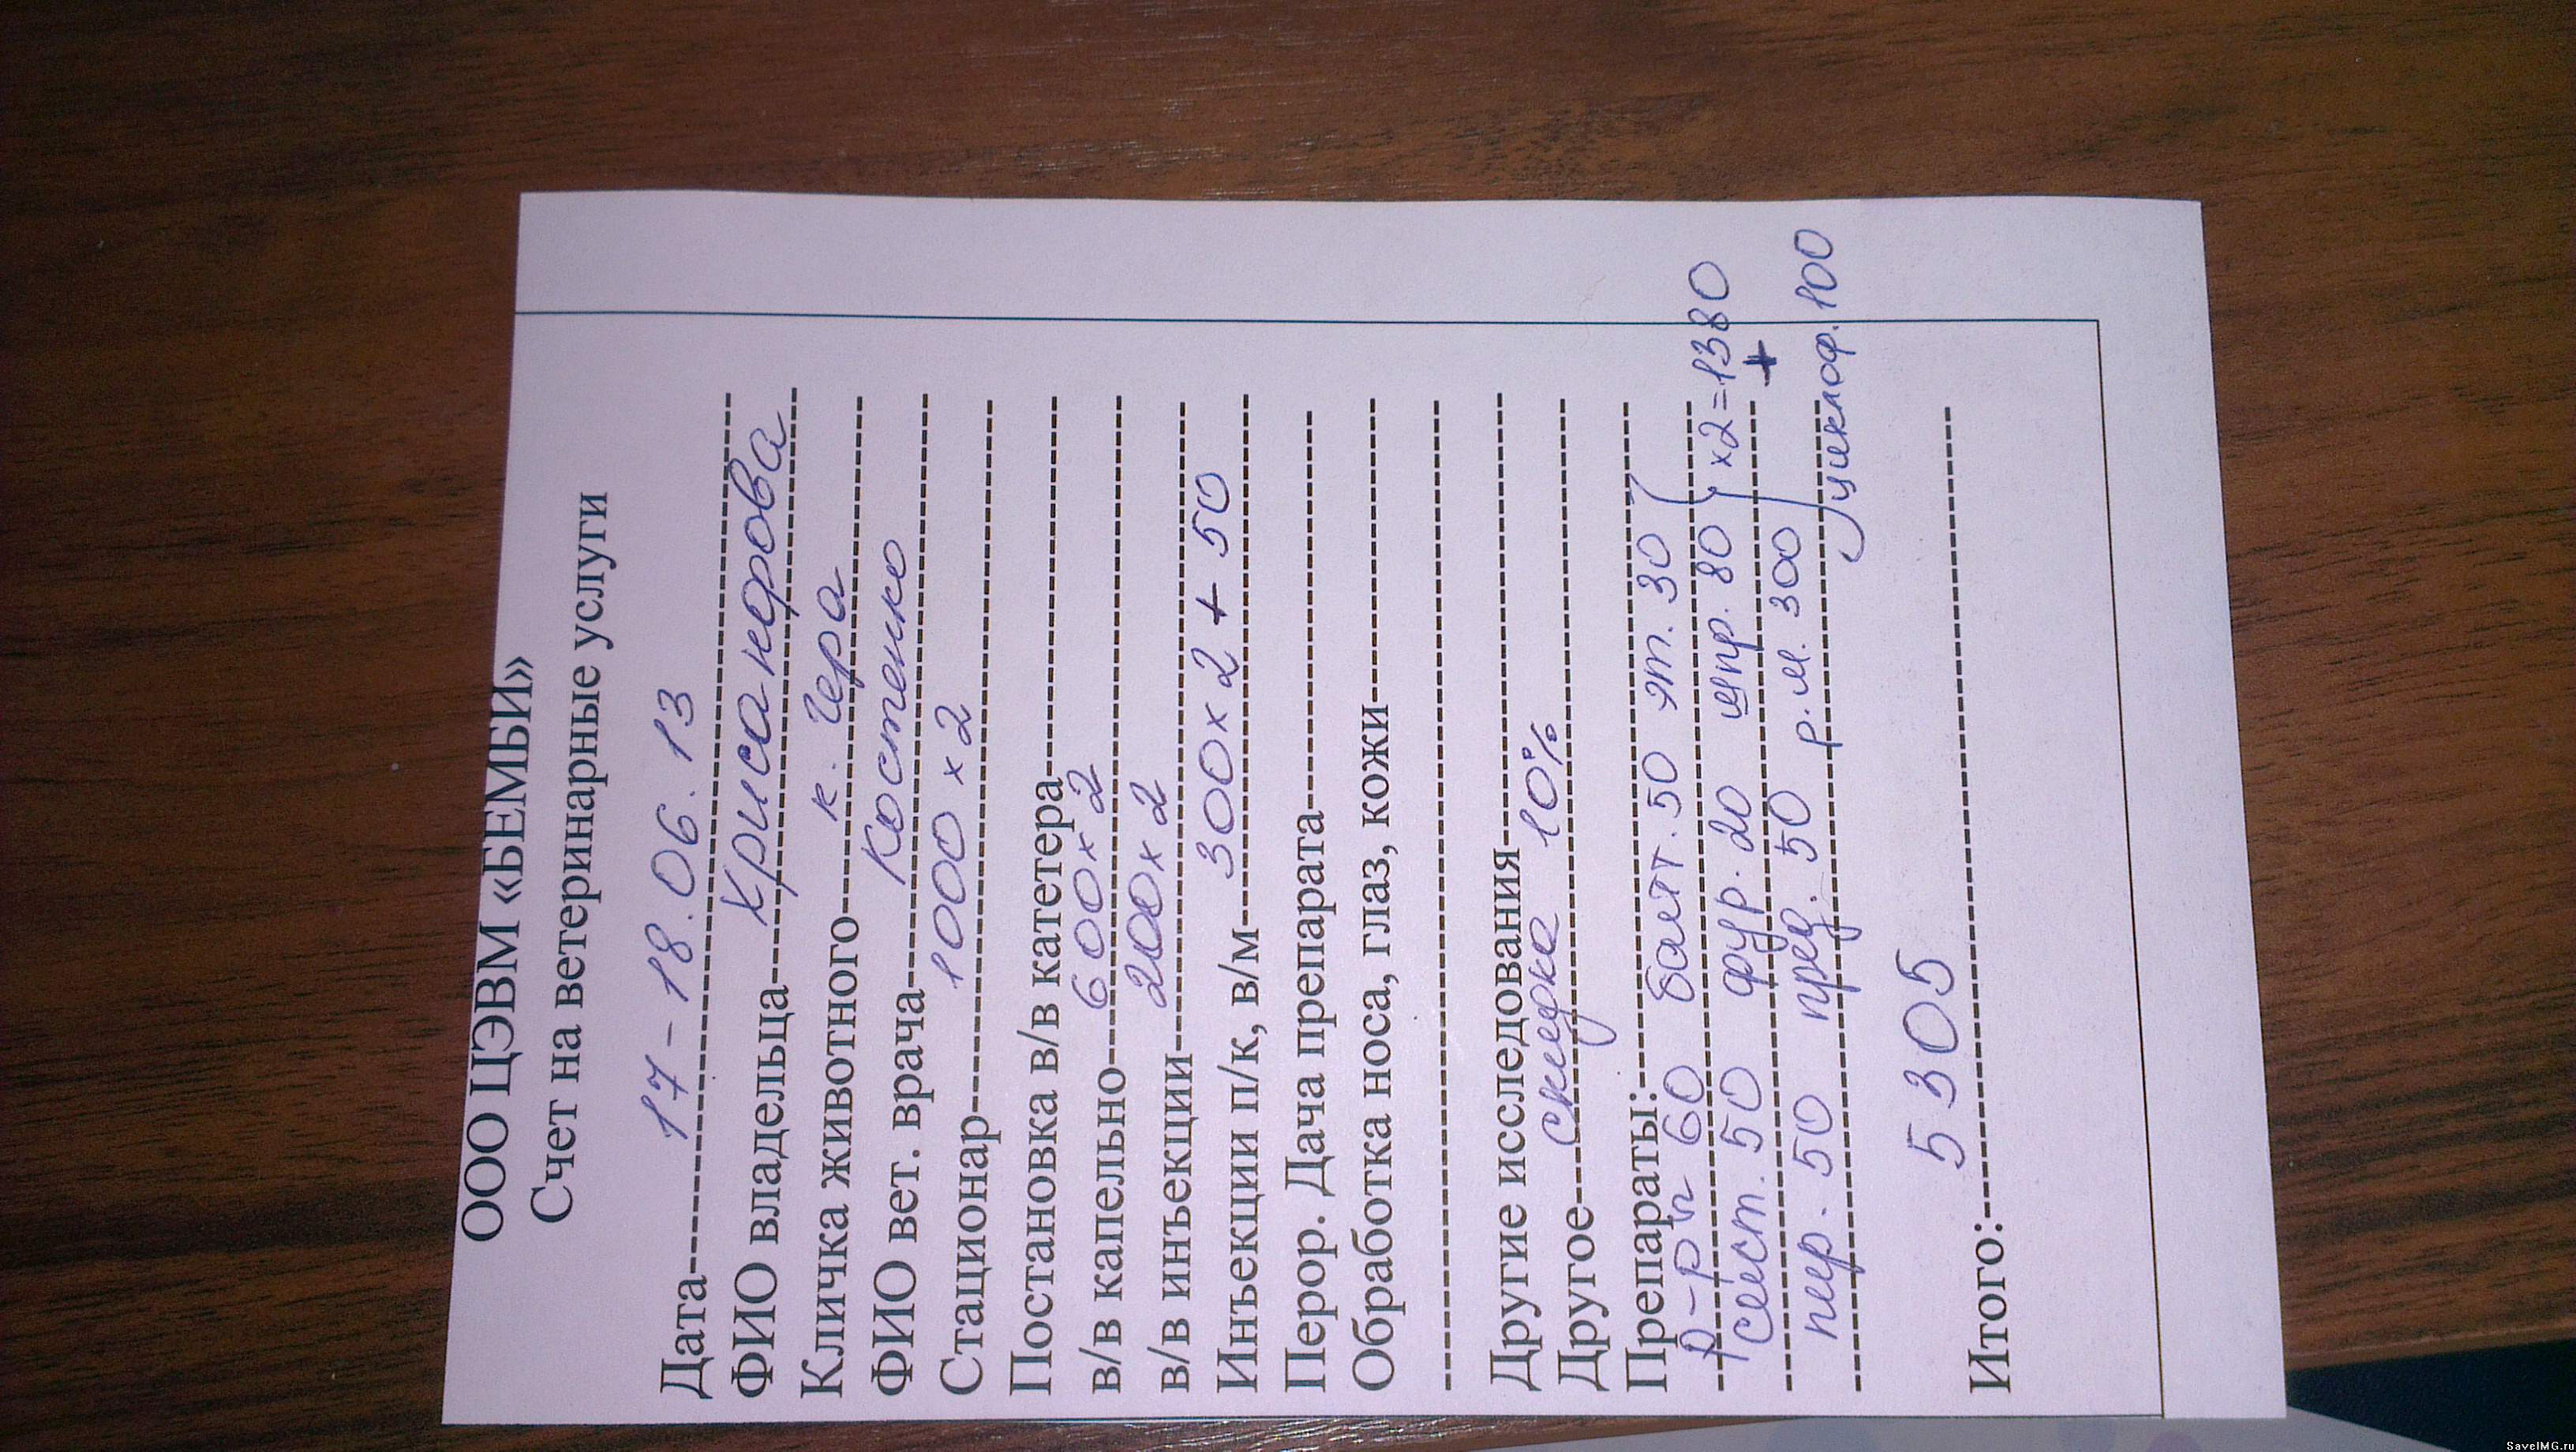 ООО ЦЭВМ «БЕМБИ»
Счет на ветеринарные услуги
Дата 17-18.06.13
ФИО владельца Хрисанфрова
Кличка животного к. Гера
ФИО вет. врача Костенко
Стационар 1000 x 2
Постановка в/в катетера
в/в капельно 600 x 2
в/в инъекции 200 x 2
Инъекции п/к, в/м 300 x 2 + 50
Перор. Дача препарата
Обработка носа, глаз, кожи
Другие исследования
Другое скидка 10%
Препараты:
р-р 60 байт. 50 эт. 30
сент. 50 фур. 20 цпр. 80 x2=1380
пир. 50 пред. 50 р.м. 300 +
циклоф. 100
Итого: 5305
SaveIMG.ru